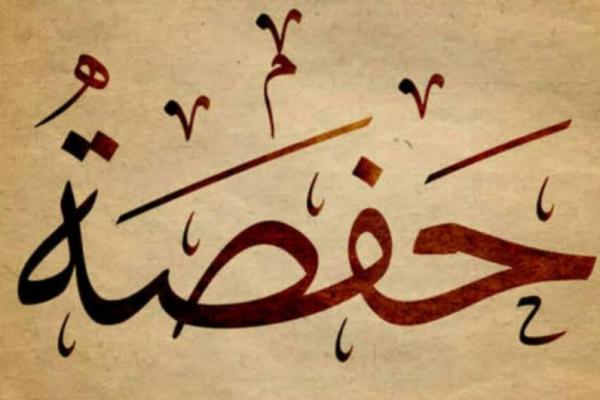 حَفصَةُ